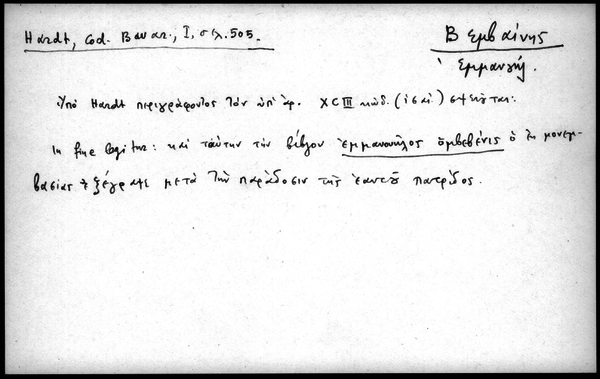 Hardt, Cod. Bavar., I, σελ. 505.
Βεμβαίνης
Εμμανουήλ.
Υπό Hardt περιγράφοντος τον υπ' αρ. XCIII κώδ. σημειούται:
In fine legitur: και ταύτην την βίβλον ἐμμανουῆλος ὁμβεβένις ὁ ἐκ μονεμ-
βασίας ἐξέγραψε μετὰ τὴν παράδοσιν τῆς ἑαυτοῦ πατρίδος.